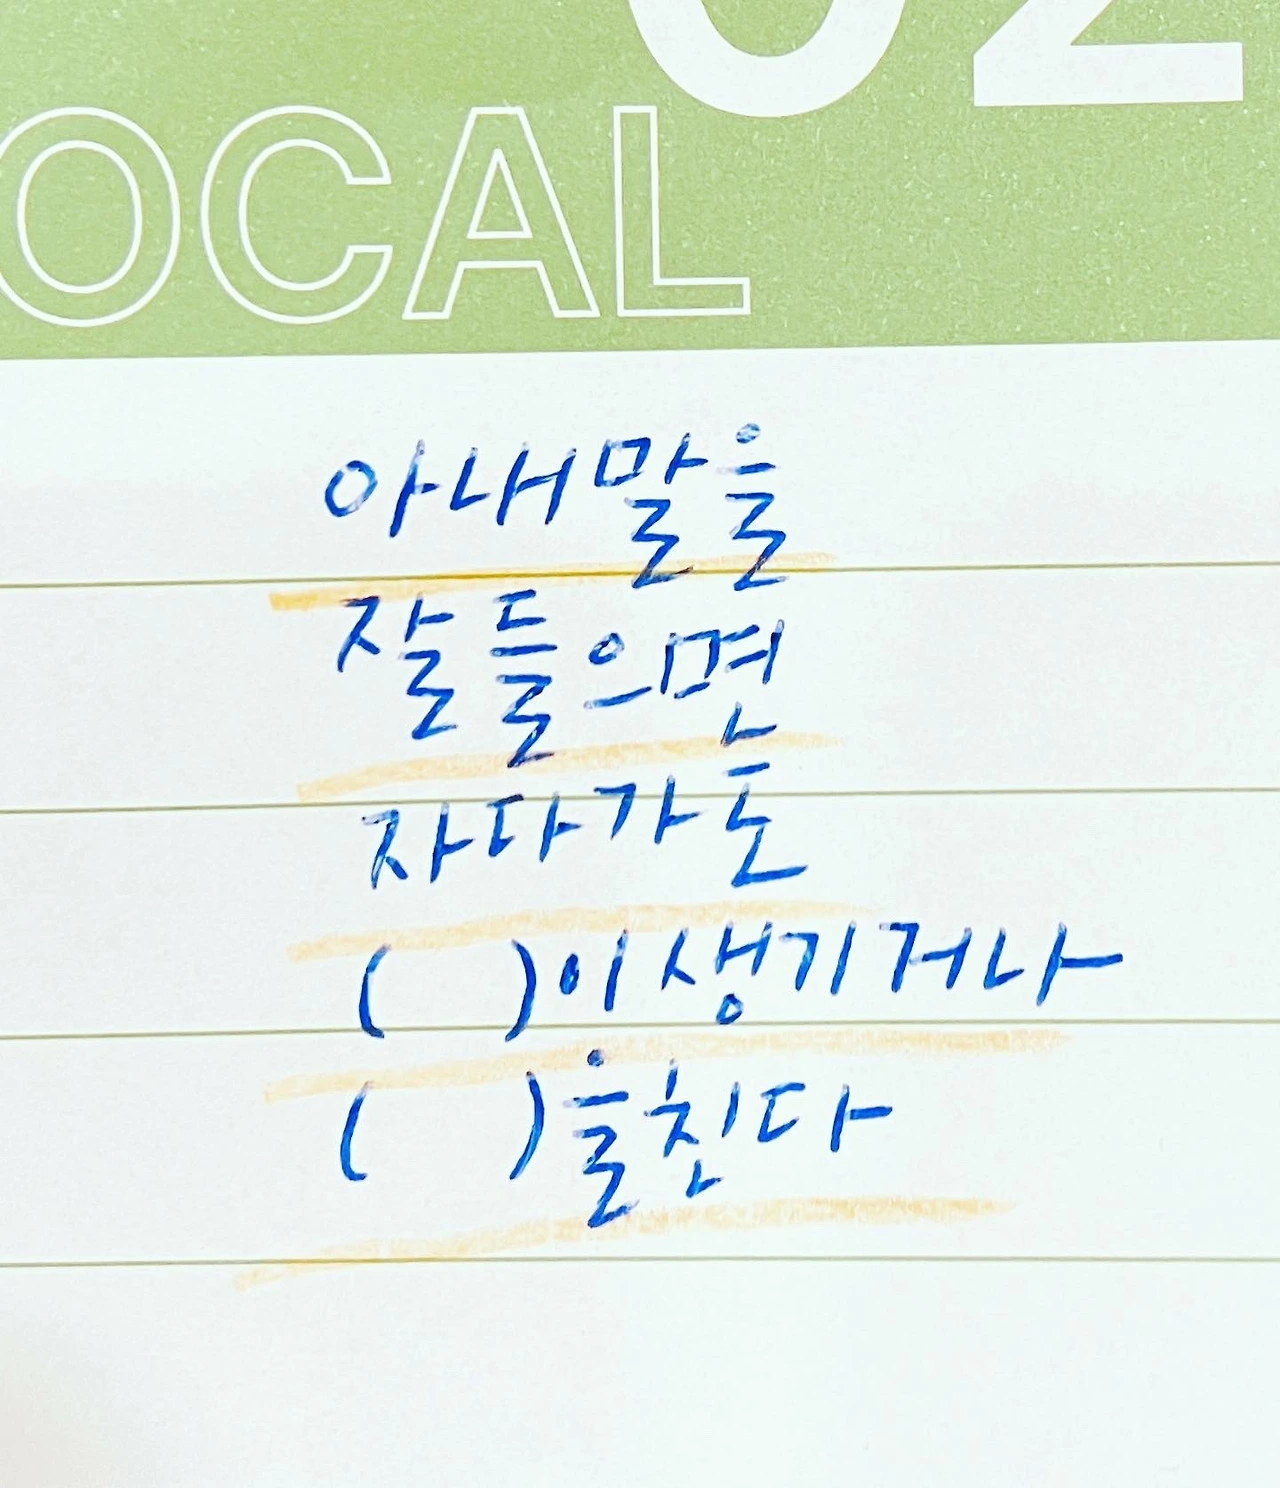 02
OCAL
아내말을
잘들으면
자다가도
(    )이생기거나
(    )을친다